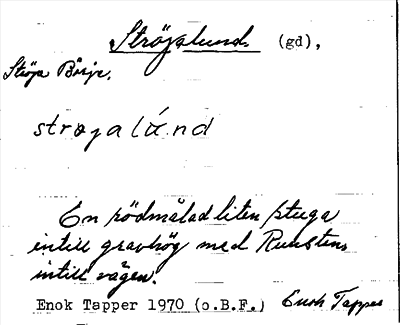 Ströjalund. (gd),
Ströja Börje.
strøjalánd
En rödmålad liten stuga
intill gravhög med Runsten
intill vägen.
Enok Tapper 1970 (o.B.F.) Enok Tapper